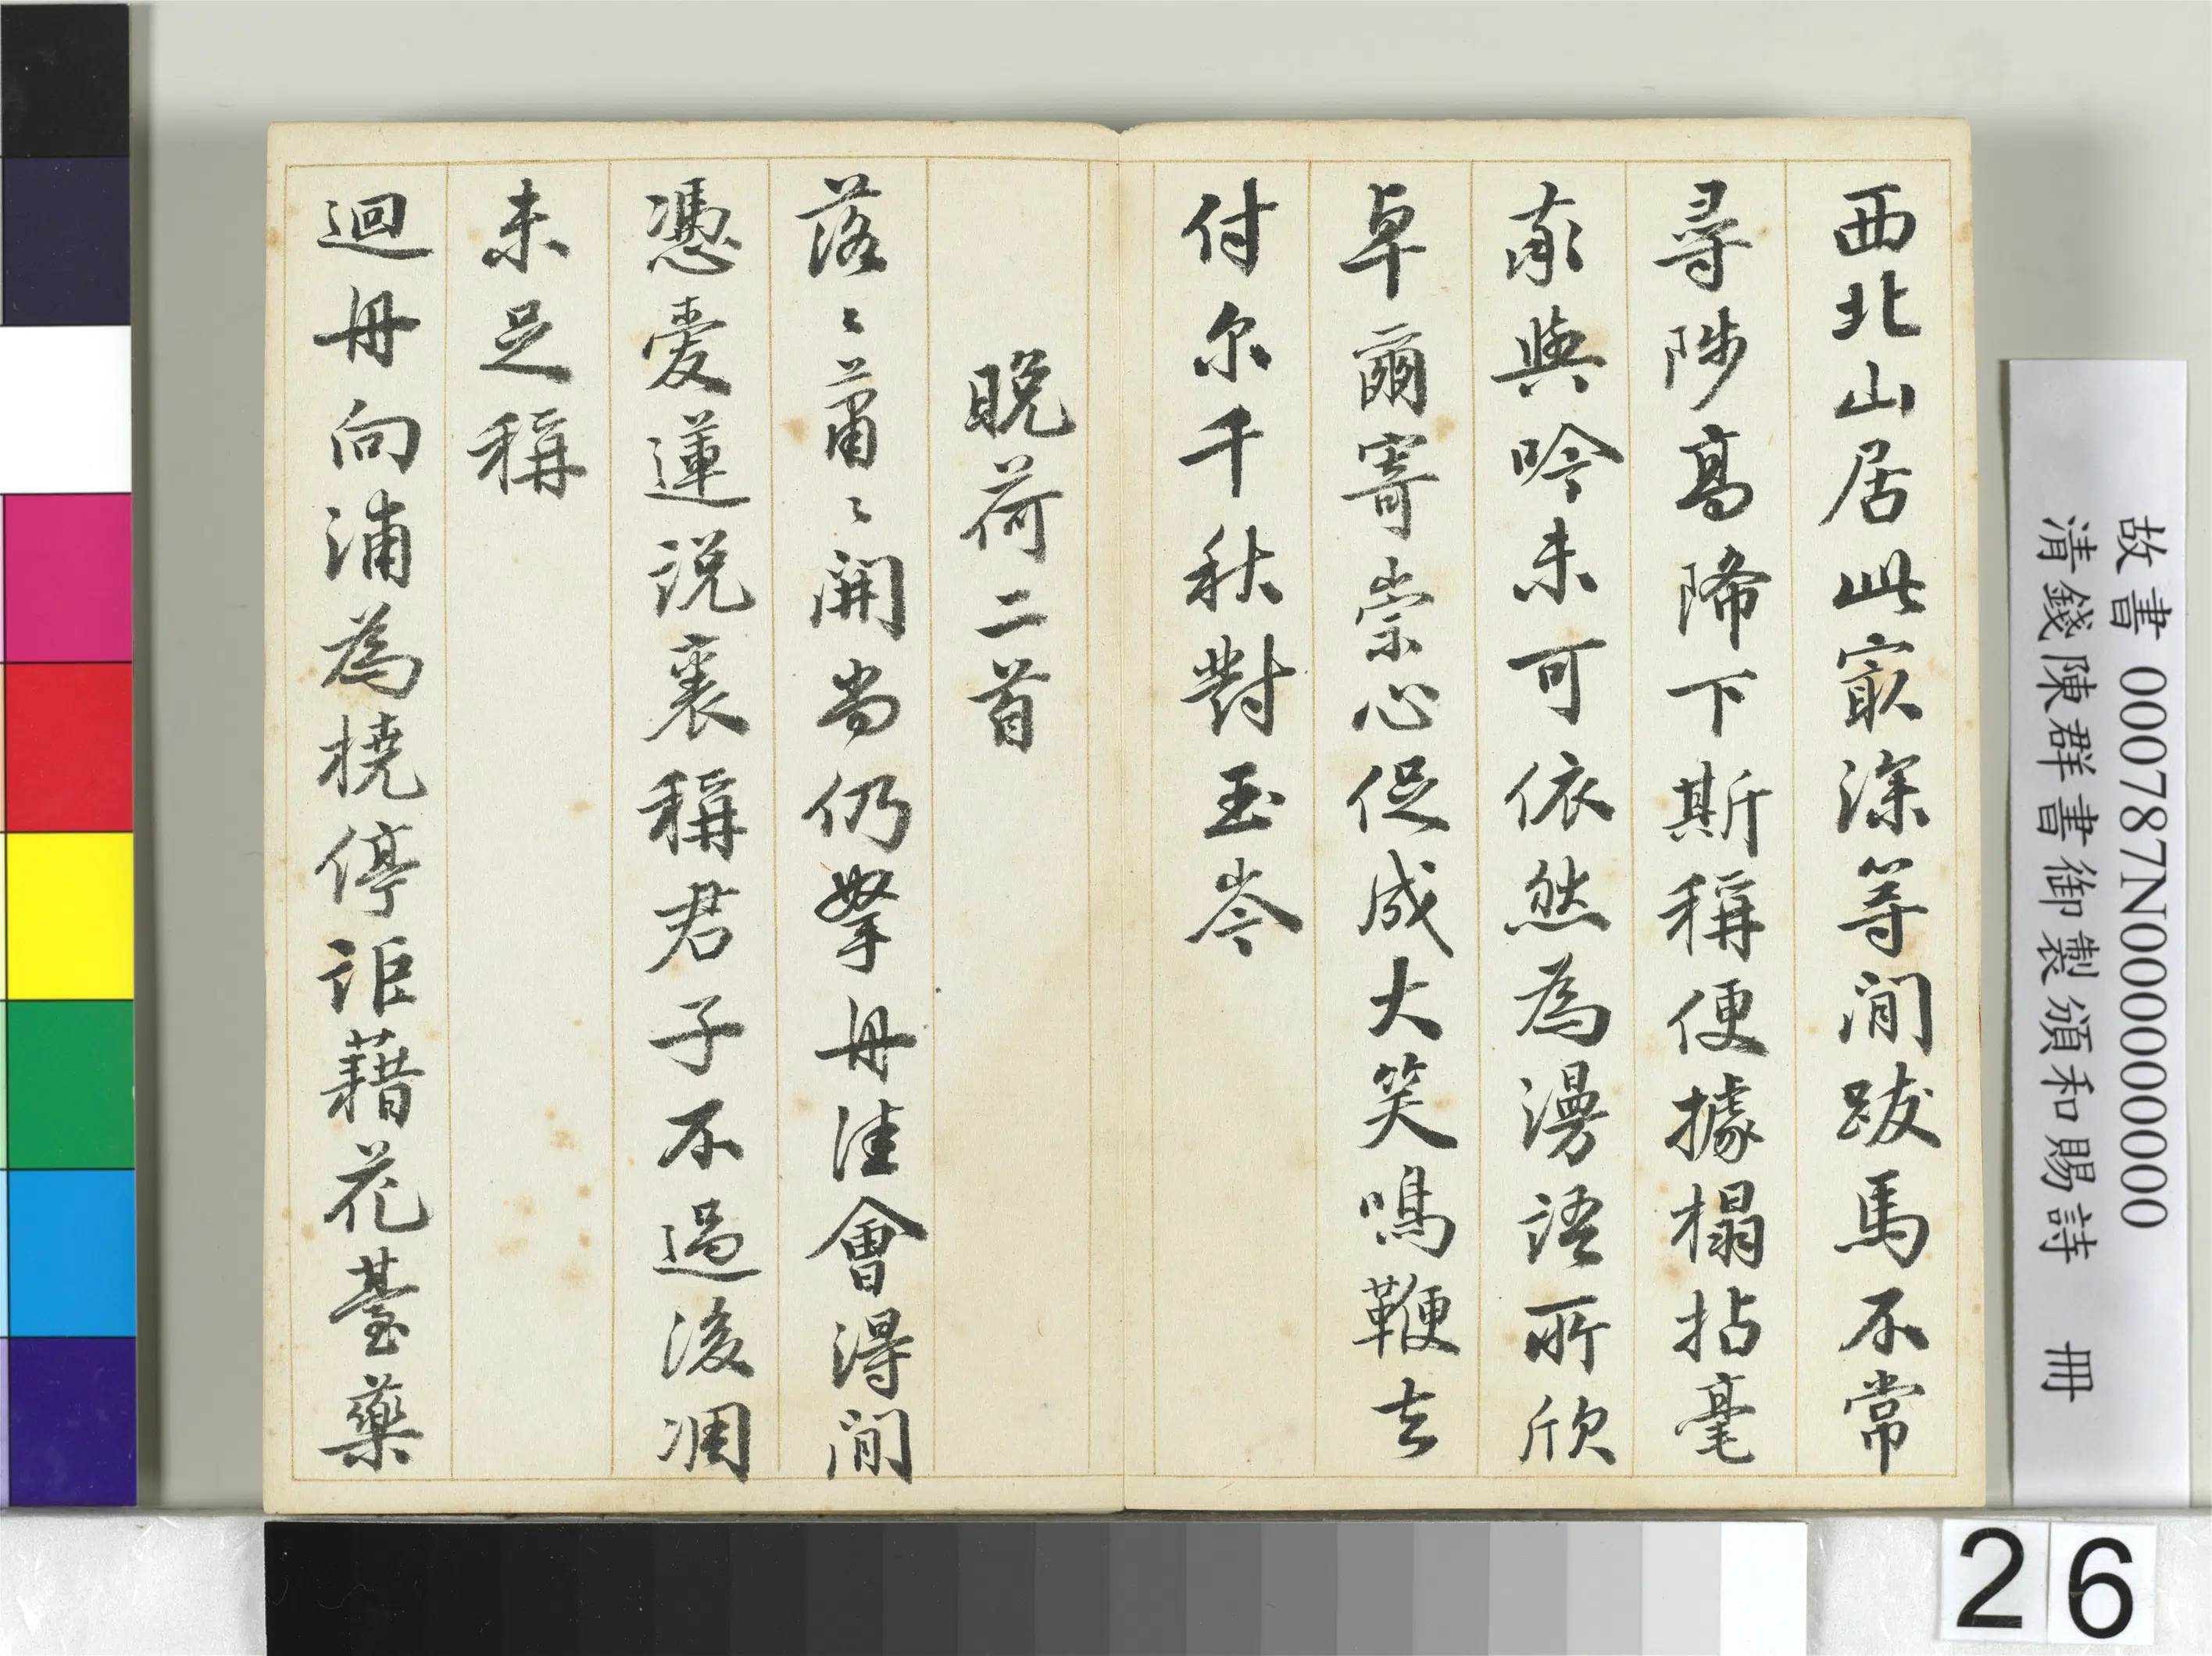 西北山居此㝡深等閒跋馬不常
尋陟髙降下斯稱便據榻拈毫
亦與吟未可依然為漫語所欣
卓爾寄崇心促成大笑鳴鞭去
付尔千秋對玉岑
晚荷二首
落〻蕭〻開尚仍拏舟佳會得閒
憑愛蓮説裏稱君子不過後凋
未足稱
迴舟向浦為橈停詎藉花臺藥
故書 000787N000000000
清錢陳群書御製頒和賜詩 冊
26